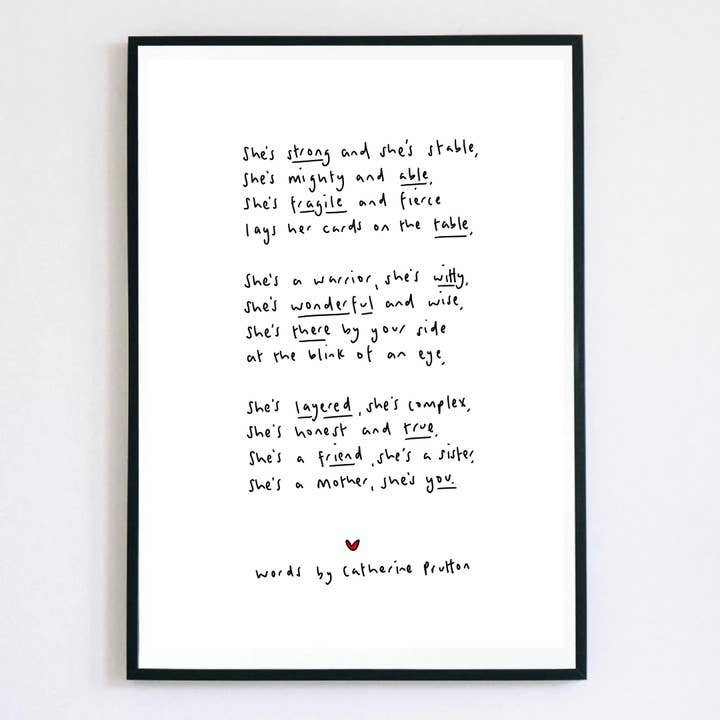 She's strong and she's stable,
She's mighty and able,
She's fragile and fierce
lays her cards on the table,
She's a warrior, she's witty,
She's wonderful and wise,
She's there by your side
at the blink of an eye,
She's layered, she's complex,
She's honest and true,
She's a friend, she's a sister,
She's a Mother, she's you.
words by Catherine Prutton